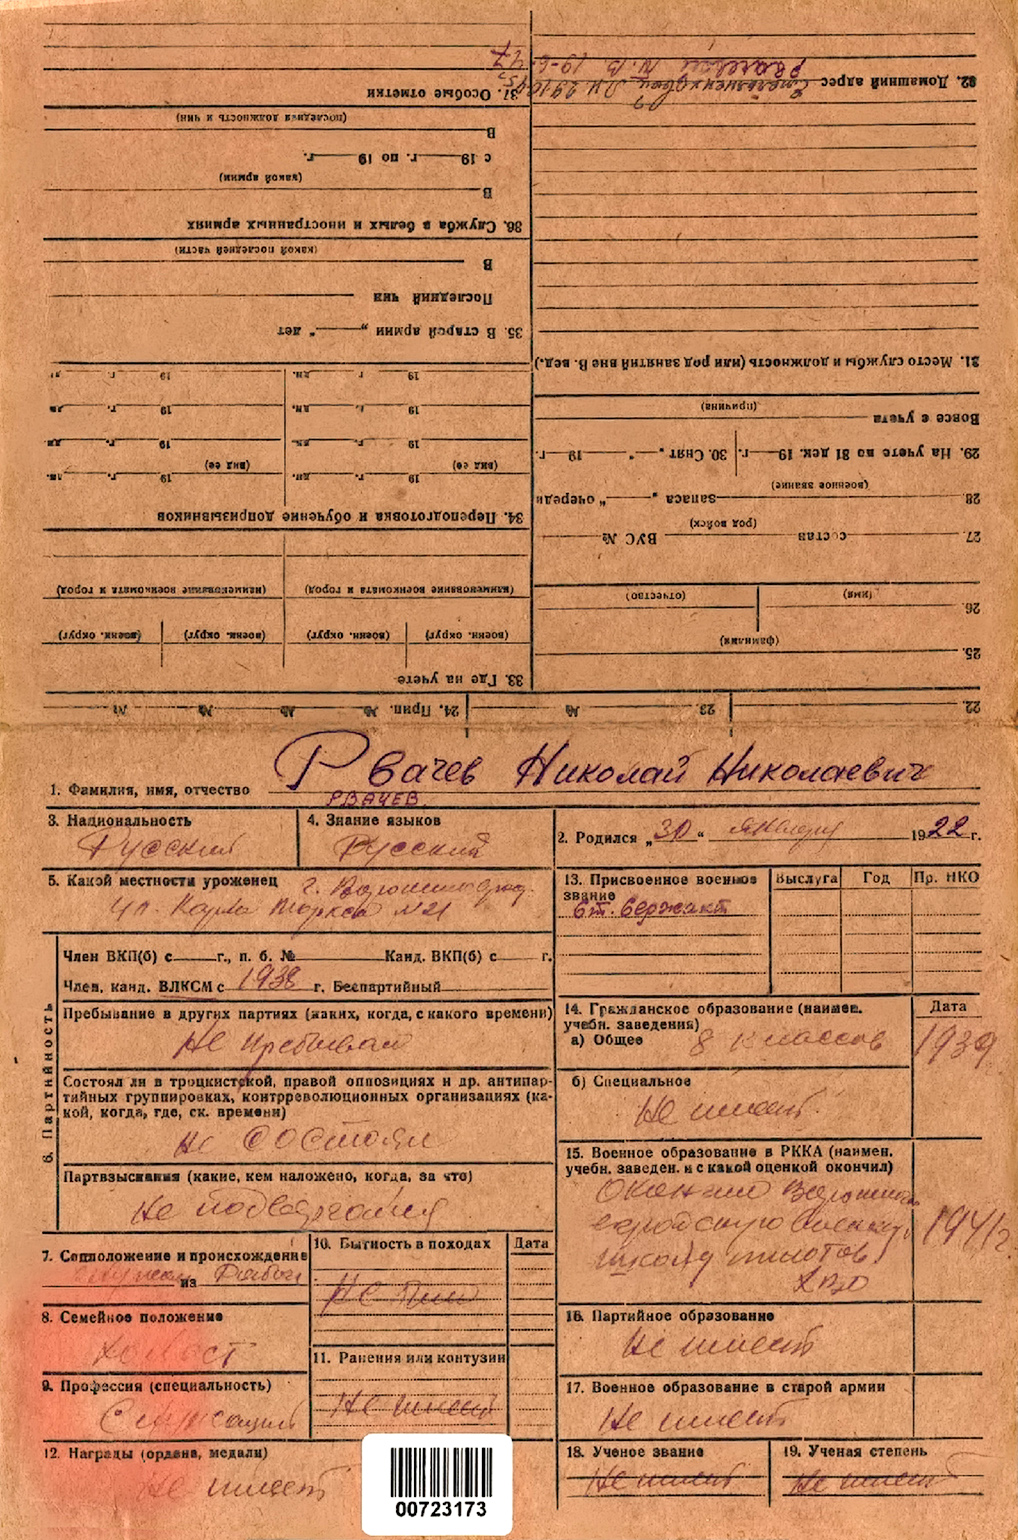 1. Фамилия, имя, отчество Рвачев Николай Николаевич
РВАЧЕВ
3. Национальность Русский
4. Знание языков Русский
2. Родился „30“ января 1922 г.
5. Какой местности уроженец г. Ворошиловград.
ул. Карла Маркса №21
13. Присвоенное военное звание Выслуга Год Пр. НКО
Ст. Сержант
6. Партийность
Член ВКП(б) с г., п. б. № Канд. ВКП(б) с г.
Член, канд. ВЛКСМ с 1938 г. Беспартийный
Пребывание в других партиях (каких, когда, с какого времени)
Не пребывал
Состоял ли в троцкистской, правой оппозициях и др. антипар-
тийных группировках, контрреволюционных организациях (ка-
кой, когда, где, ск. времени)
Не состоял
Партвзыскания (какие, кем наложено, когда, за что)
Не подвергался
14. Гражданское образование (наимен. Дата
учебн. заведения)
а) Общее 8 классов 1939
б) Специальное
Не имеет
15. Военное образование в РККА (наимен.
учебн. заведен. и с какой оценкой окончил)
Окончил Ворошилов
градскую военную
школу пилотов 1941 г.
ХВО
7. Соцположение и происхождение
Служащ из Рабоч
8. Семейное положение
Холост
9. Профессия (специальность)
Служащий
10. Бытность в походах Дата
Не был
11. Ранения или контузии
Не имеет
12. Награды (ордена, медали)
Не имеет
16. Партийное образование
Не имеет
17. Военное образование в старой армии
Не имеет
18. Ученое звание
Не имеет
19. Ученая степень
Не имеет
00723173
22. 23. № 24. Прип. № № № №
25.
(фамилия)
26.
(имя) (отчество)
27. состав ВУС №
(род войск)
28 запаса „ “ очереди
(военное звание)
29. На учете по 31 дек. 19 г. 30. Снят „ “ 19 г.
Вовсе с учета
(причина)
31. Место службы и должность (или род занятий вне В. вед.)
32. Домашний адрес
Рвачевой 19-6-47
33. Где на учете
(воен. округ) (воен. округ) (воен. округ) (воен. округ)
(наименование военкомата и город) (наименование военкомата и город)
34. Переподготовка и обучение допризывников
19 г. дн. 19 г. дн.
(вид ее) (вид ее)
19 г. дн. 19 г. дн.
19 г. дн. 19 г. дн.
19 г. дн. 19 г. дн.
35. В старой армии „ “ лет
Последний чин
В
(какой последней части)
36. Служба в белых и иностранных армиях
В
(какой армии)
с 19 г. по 19 г.
В
(последняя должность и чин)
37. Особые отметки